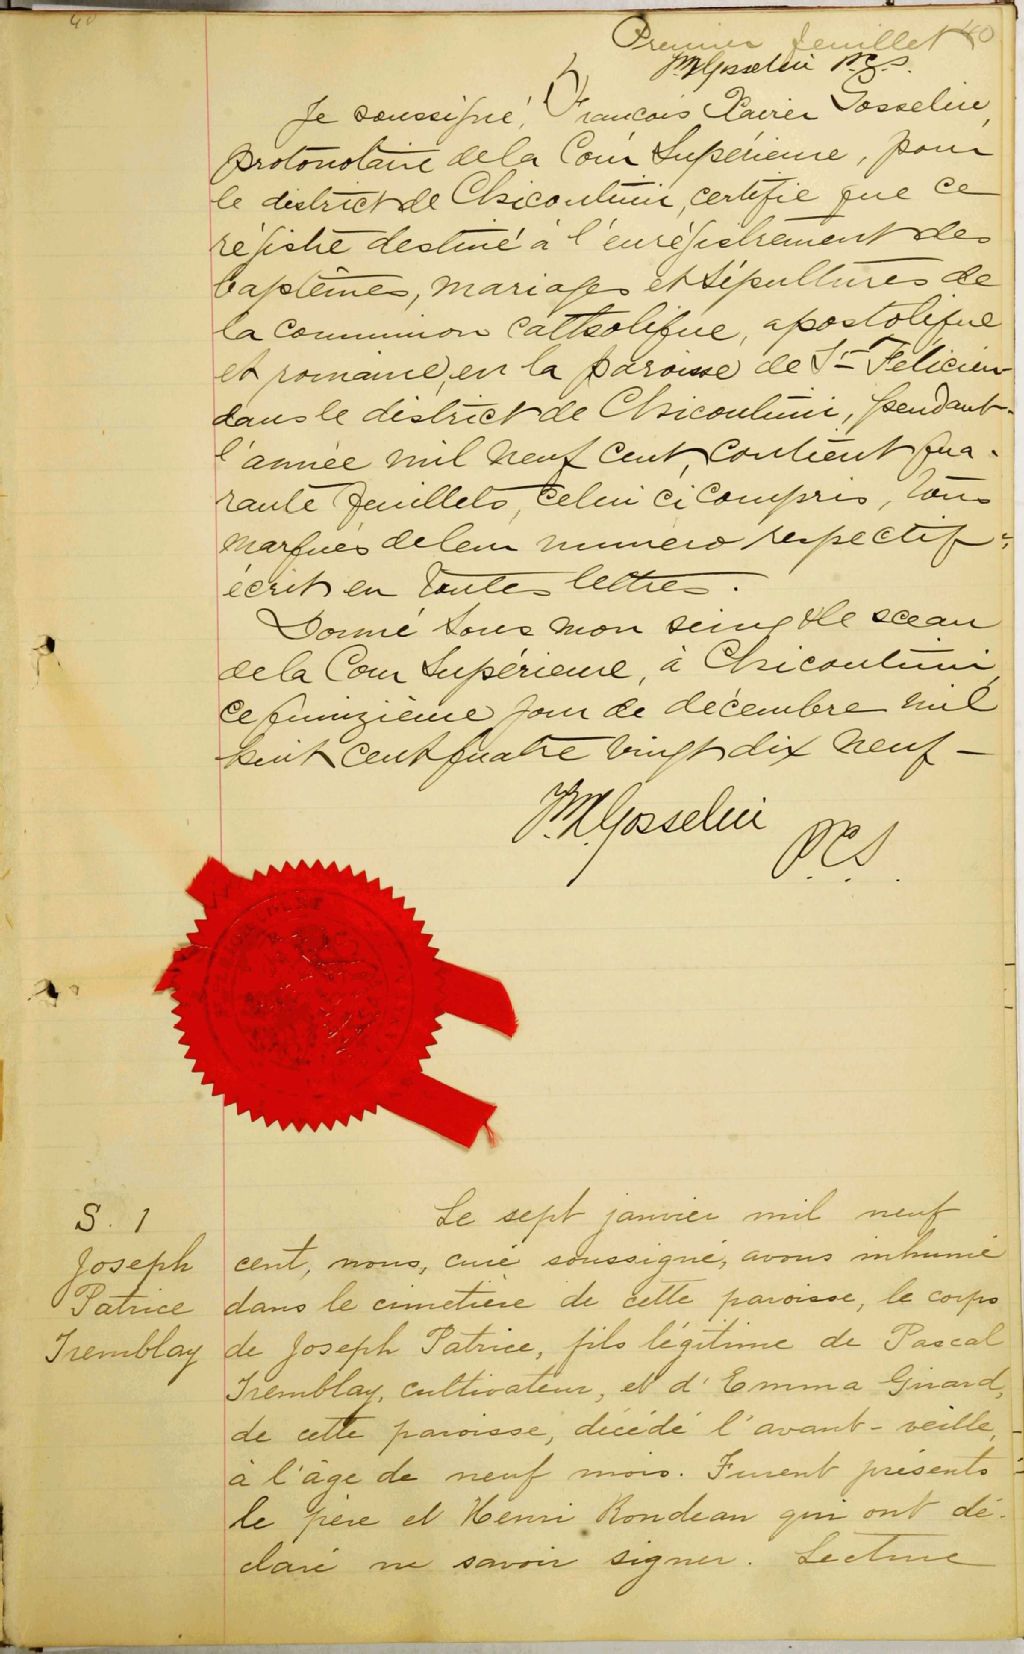 40
Premier feuillet 40
F.X. Gosselin P.C.S.
Je soussigné, François Xavier Gosselin,
protonotaire de la Cour Supérieure, pour
le district de Chicoutimi, certifie que ce
régistre destiné à l'enrégistrement des
baptêmes, mariages et sépultures de
la communion catholique, apostolique
et romaine, en la paroisse de St- Félicien
dans le district de Chicoutimi, pendant
l'année mil neuf cent, contient qua-
rante feuillets, celui ci compris, tous
marqués de leur numéro respectif
écrit en toutes lettres.
Donné sous mon seing & le sceau
de la Cour Supérieure, à Chicoutimi,
ce quinzième jour de décembre mil
huit cent quatre vingt dix neuf -
F.X. Gosselin
P.C.S.
S. 1
Joseph
Patrice
Tremblay
Le sept janvier mil neuf
cent, nous, curé soussigné, avons inhumé
dans le cimetière de cette paroisse, le corps
de Joseph Patrice, fils légitime de Pascal
Tremblay, cultivateur, et d'Emma Girard,
de cette paroisse, décédé l'avant-veille,
à l'âge de neuf mois. Furent présents
le père et Henri Rondeau qui ont dé-
claré ne savoir signer. Lecture